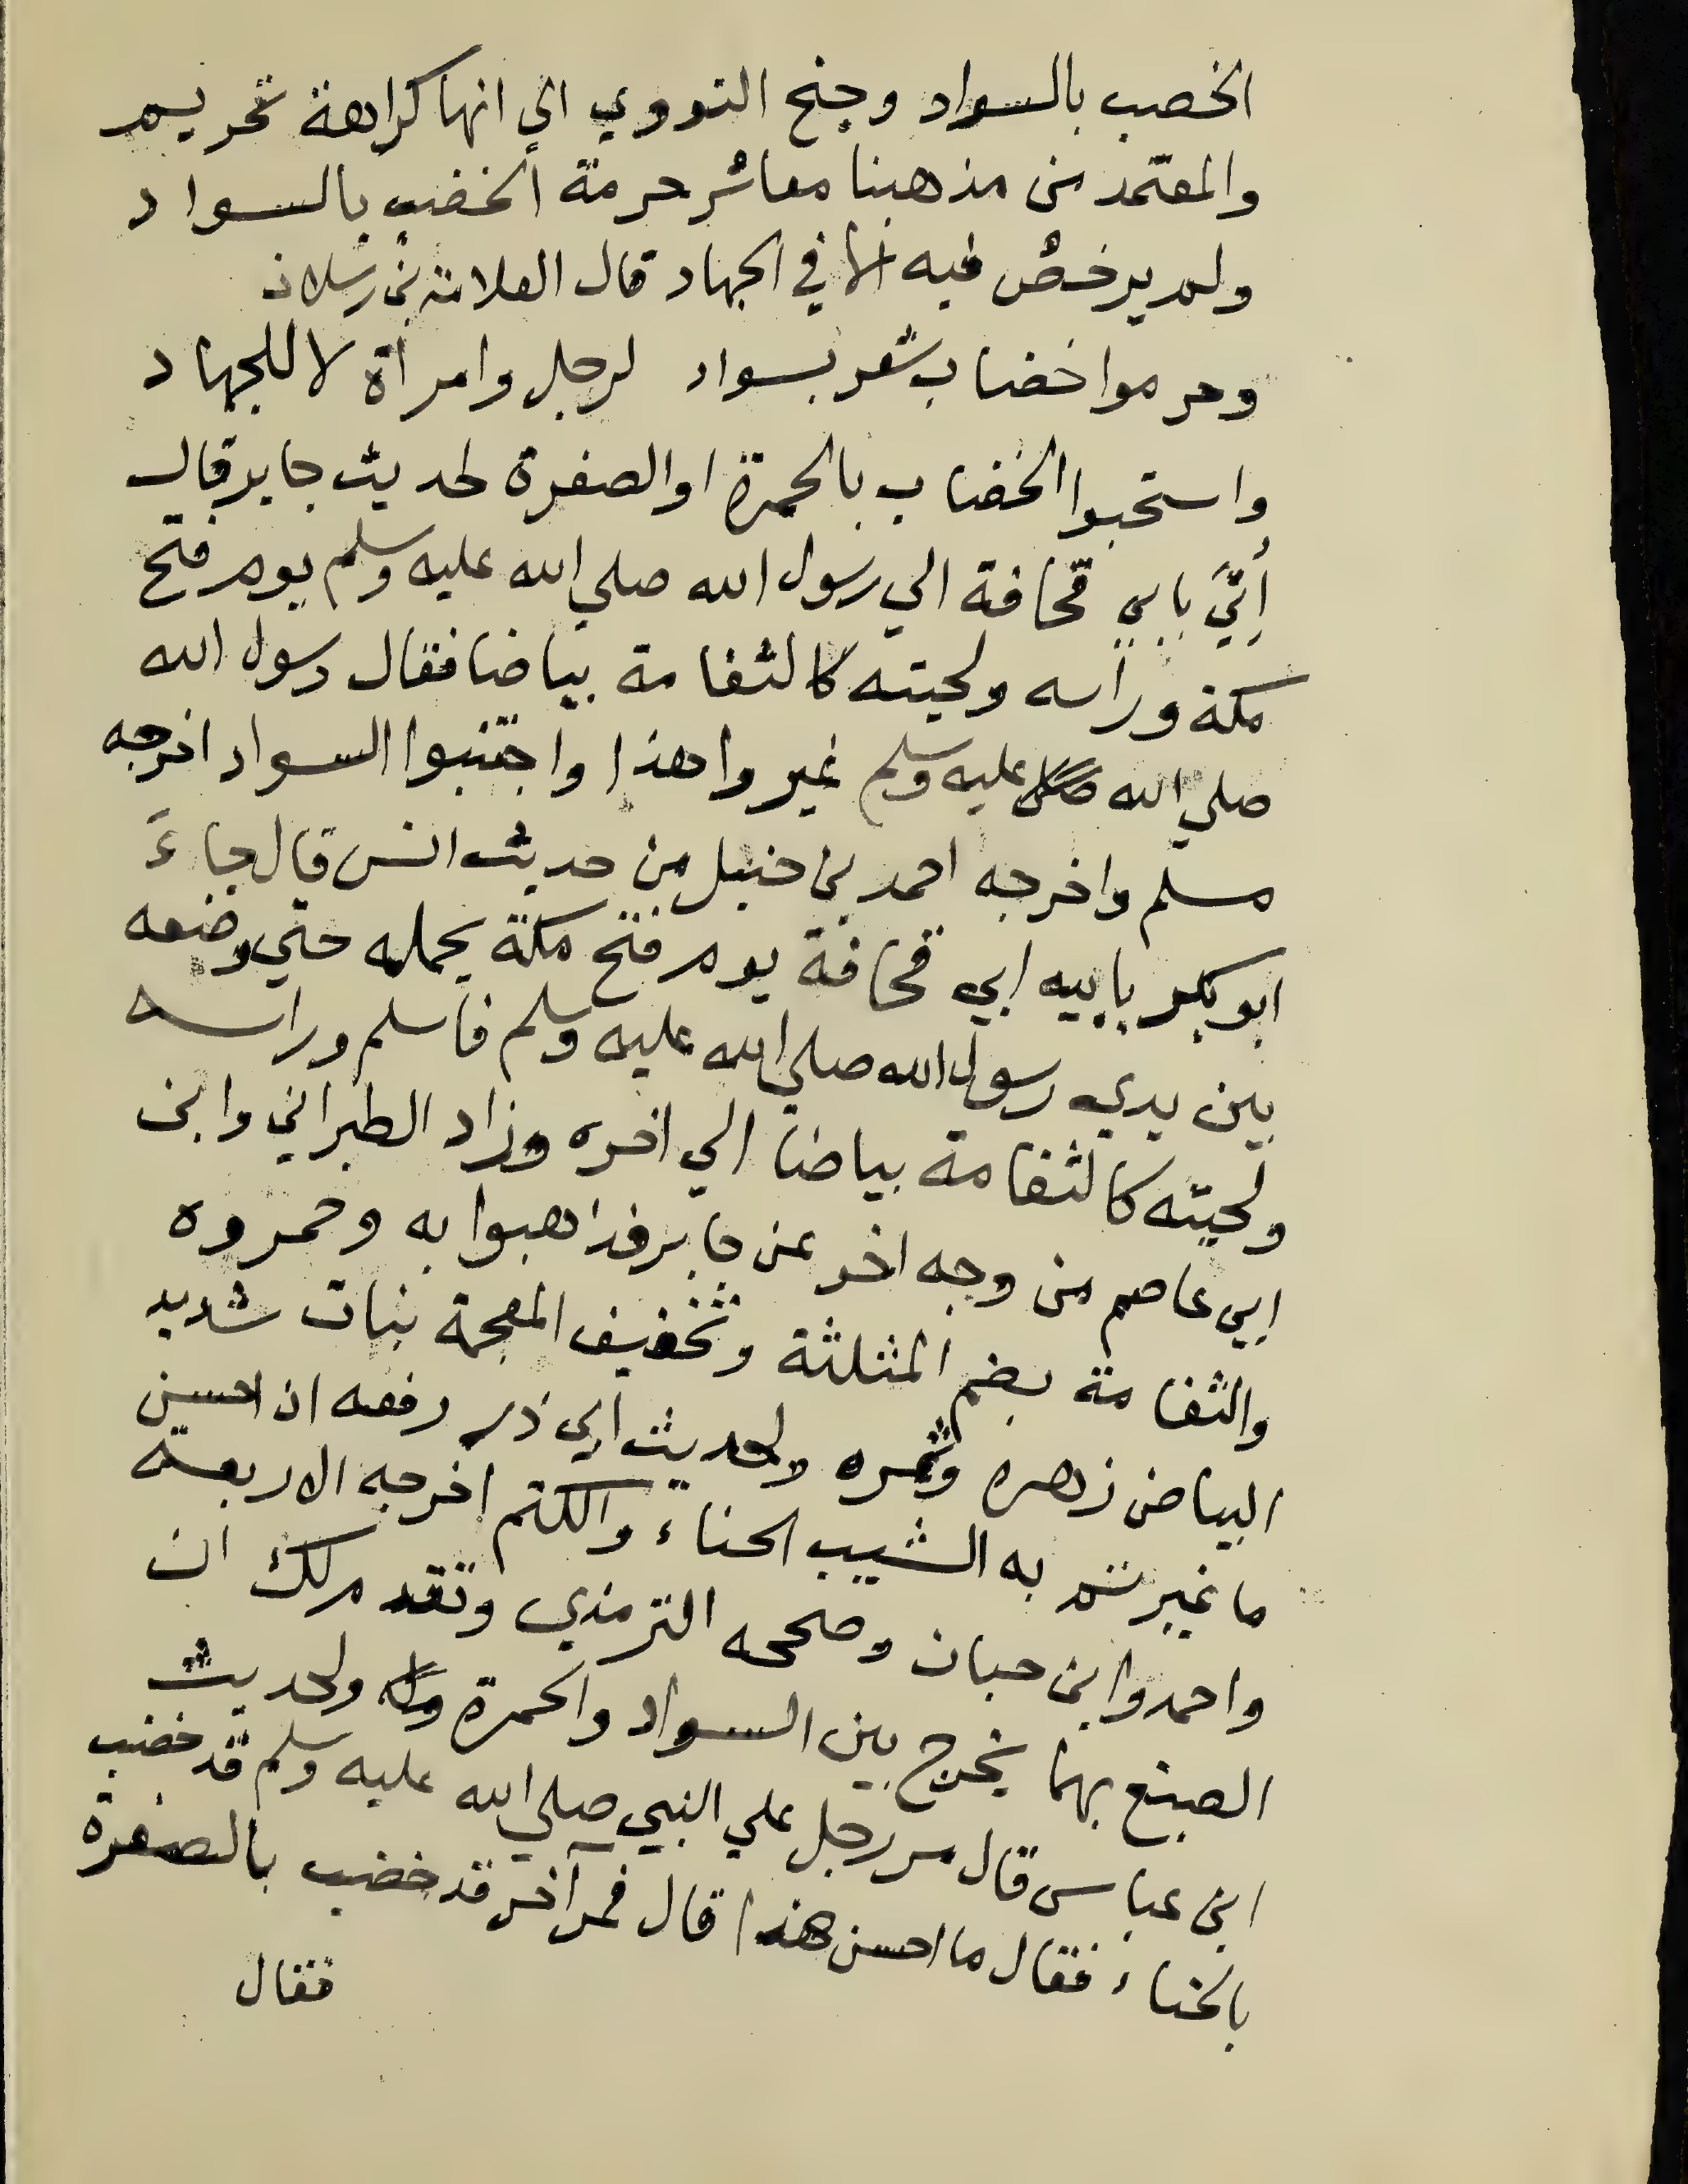 الخصب بالسواد وجنح النووي الي انها كراهة تحريم
والمعتمد من مذهبنا معاشر حرمة الخضب بالسواد
ولم يرخص فيه الا في الجهاد قال العلامة بن رسلان
وحرموا خضاب شعر بسواد لرجل وامرأة لا للجهاد
واستحبوا الخضاب بالحمرة او الصفرة لحديث جابر قال
أُتِيَ بابي قحافة الي رسول الله صلي الله عليه وسلم يوم فتح
مكة وراسه ولحيته كالثغامة بياضا فقال رسول الله
صلي الله عليه وسلم غيروا هذا واجتنبوا السواد اخرجه
مسلم واخرجه احمد بن حنبل من حديث انس قال جاءَ
ابو بكر بابيه ابي قحافة يوم فتح مكة يحمله حتي وضعه
بين يدي رسول الله صلي الله عليه وسلم فاسلم وراسه
ولحيته كالثغامة بياضا الي اخره وزاد الطبراني وابن
ابي عاصم من وجه اخر عن جابر فذهبوا به وحمروه
والثغامة بضم المثلثة وتخفيف المعجمة نبات شديد
البياض زهره وثمره ولحديث ابي ذر رفعه ان احسن
ما غيرتم به الشيب الحناء والكتم اخرجه الاربعة
واحمد وابن حبان وصححه الترمذي وتقدم لك ان
الصبغ بهما يخرج بين السواد والحمرة ولحديث
ابن عباس قال مر رجل علي النبي صلي الله عليه وسلم قد خضب
بالحناء فقال ما احسن هذا قال فمر آخر قد خضب بالصفرة
فقال